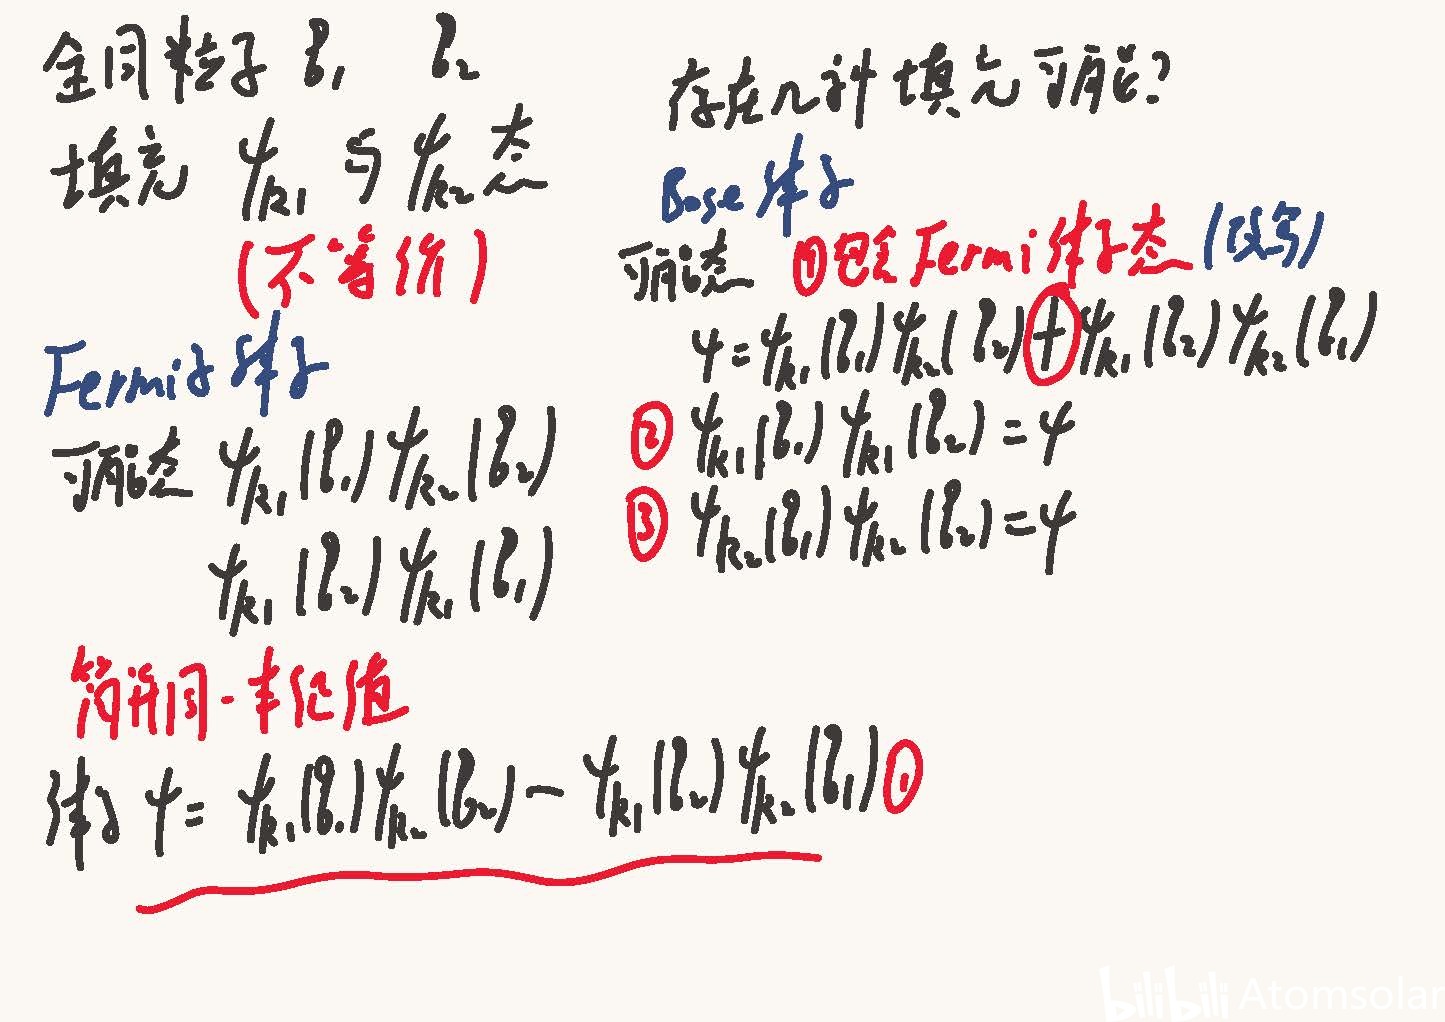 全同粒子 q₁ q₂
填充 ψk₁ 与 ψk₂态
(不等价)
Fermi子体系
可能态 ψk₁(q₁)ψk₂(q₂)
ψk₁(q₂)ψk₁(q₁)
简并同一本征值
体系 ψ=ψk₁(q₁)ψk₂(q₂)-ψk₁(q₂)ψk₂(q₁)①
存在几种填充可能?
Bose体系
可能态 ①包含Fermi体系态(改写)
ψ=ψk₁(q₁)ψk₂(q₂)+ψk₁(q₂)ψk₂(q₁)
② ψk₁(q₁)ψk₁(q₂)=ψ
③ ψk₂(q₁)ψk₂(q₂)=ψ
bilibili Atomsolar